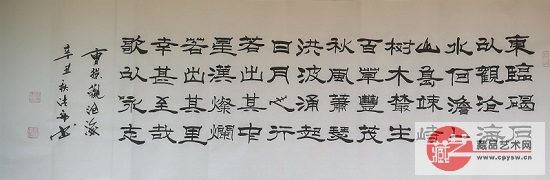 東臨碣石
以觀沧海
水何澹
山島竦峙
树木藂生
百草豐茂
秋風蕭瑟
洪波涌起
日月之行
若出其中
星漢燦爛
若出其里
幸甚至哉
歌以咏志
曹操觀沧海
辛丑秋
藏品艺术网
www.cpysw.cn